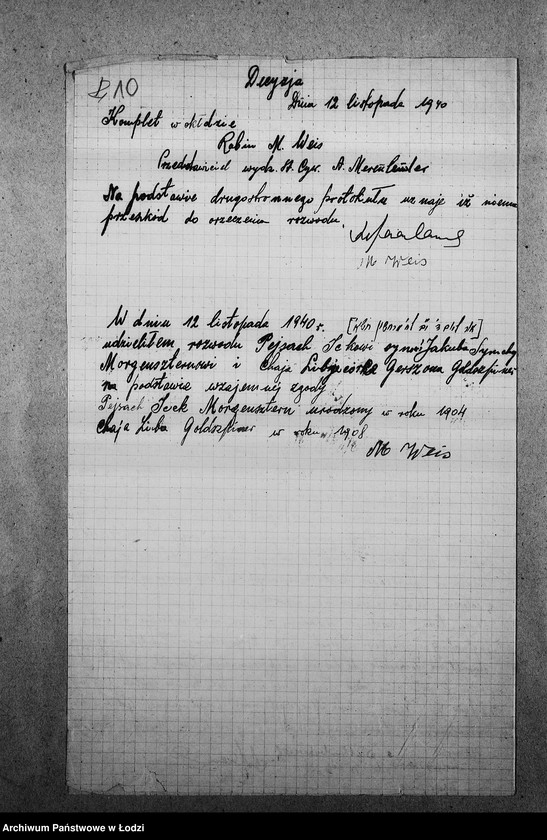 10
Decyzja
Dnia 12 listopada 1940
Komplet w składzie
Rabin M. Weis
Przedstawiciel wydz. St. Cyw. A. Merenlender
Na podstawie drugostronnego protokułu uznaje iż niema
przeszkód do orzeczenia rozwodu
M Weis
W dniu 12 listopada 1940 r.
udzieliłem rozwodu Pejsach Ickowi synowi Jakuba Symchy
Morgenszternowi i Chaja Libie córke Gerszona Goldszpiner
na podstawie wzajemnej zgody
Pejsach Icek Morgensztern urodzony w roku 1904
Chaja Liuba Goldszpiner w roku 1908
M Weis
Archiwum Państwowe w Łodzi